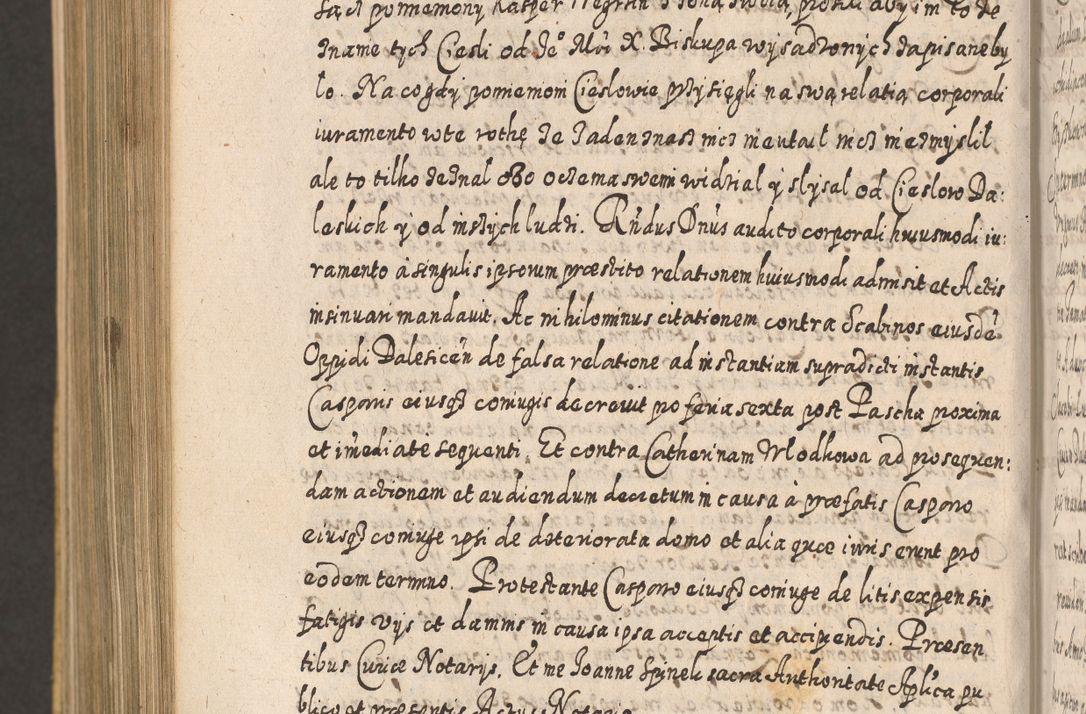 poniemony Kasper
zname tych Ciesli od Je° Mći X. Biskupa wysadzonych zapisane by
lo. Na co gdy pomiemoni Cieslowie przysięgli na swą relatią corporali
iuramento wte rothę ze zaden znas nic nieutail nic niezmyslil
ale to tilko zeznal obo oczema swemi widzial y slysal od Cieslow Da:
leskich y od inszych ludzi. Rndus Dnus audito corporali huiusmodi iu:
ramento à singulis ipsorum præstito relationem huiusmodi admisit et Actis
insinuari mandauit. Ac nihilominus citationem contra Scabinos eiusde
Oppidi Dalesicen de falsa relatione ad instantiam supradicti instantis
Casporis eiusq coniugis decreuit pro feria sexta post Pascha proxima
et imediate sequenti. Et contra Catherinam Wlodkowa ad prosequen:
dam actionem et audiendum decretum in causa à præfatis Casporo
eiusq coniuge ipsi de deteriorata domo et alia quæ iuris erunt pro
eodem termino. Protestante Casporo eiusq coniuge de litis expensis
fatigis vijs et damnis in causa ipsa acceptis et accipiendis. Præsen
tibus Curiæ Notarijs. Et me Joanne Spinek sacra Authoritate Aplica pu
blico et præsentis Actus Notario